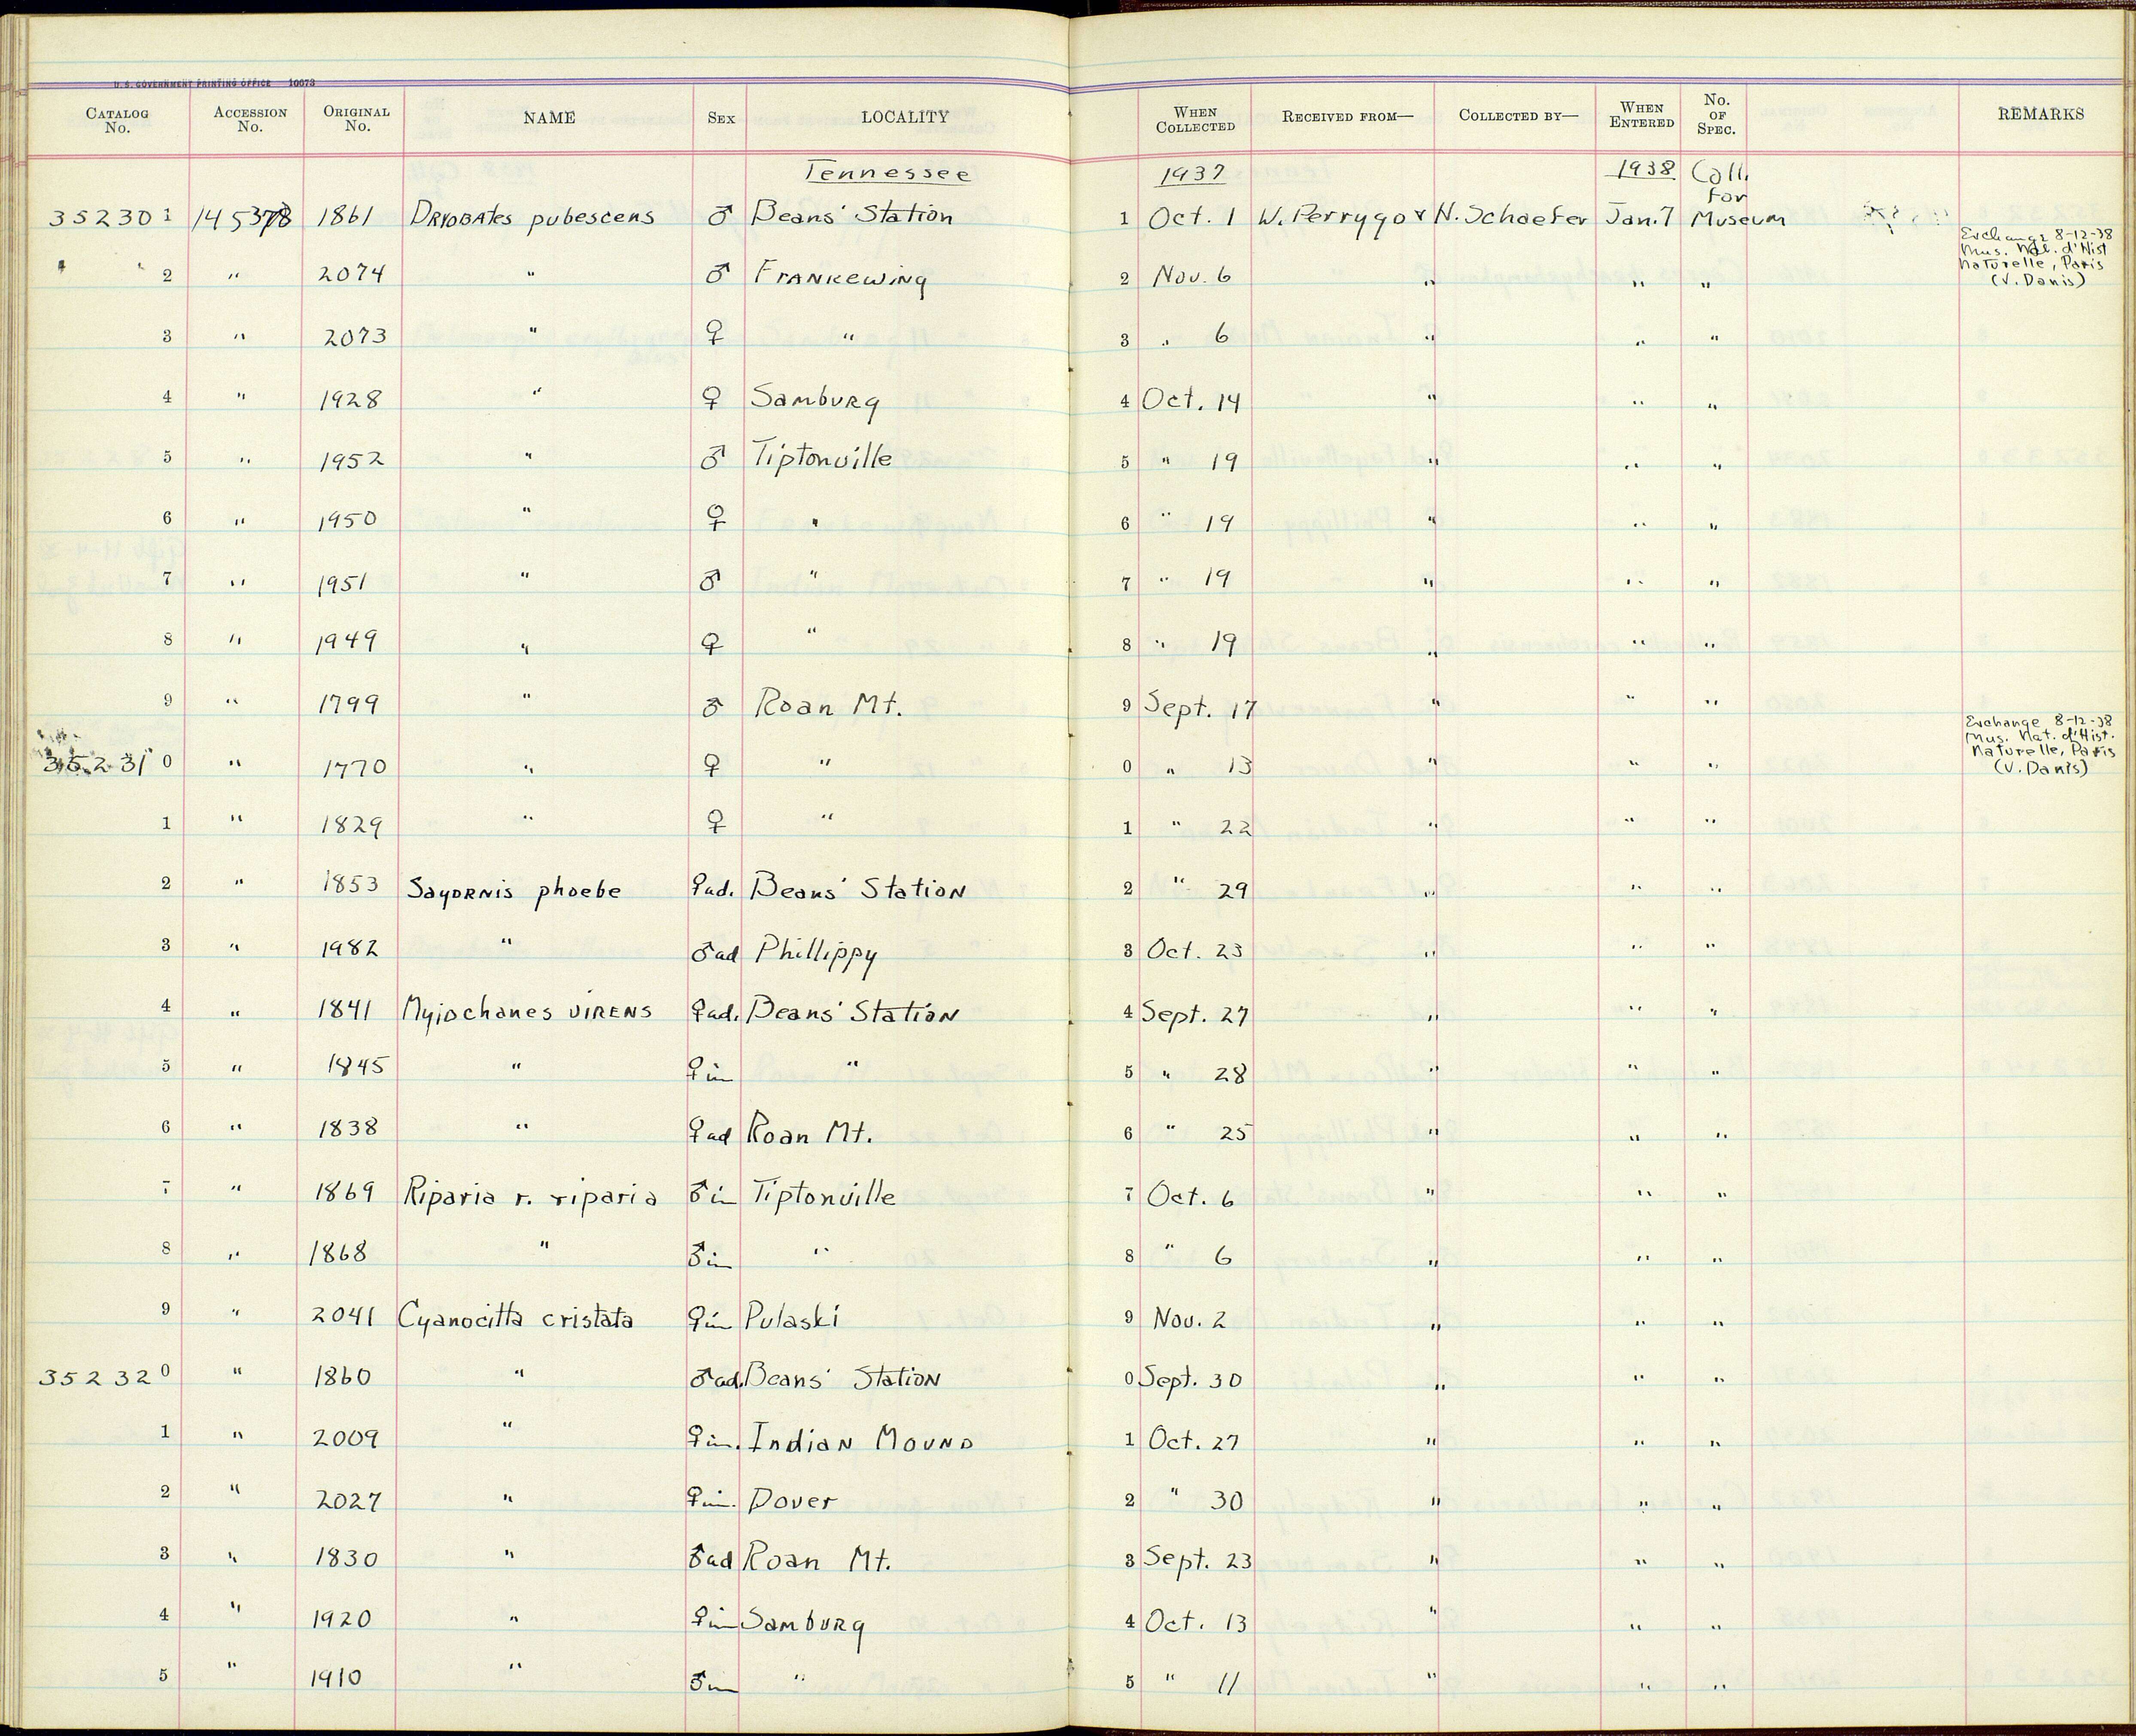 U. S. GOVERNMENT PRINTING OFFICE 10673
CATALOG No. ACCESSION No. ORIGINAL No. NAME SEX LOCALITY WHEN COLLECTED RECEIVED FROM— COLLECTED BY— WHEN ENTERED No. OF SPEC. REMARKS
Tennessee 1937 1938 Coll. for
352301 145378 1861 Dryobates pubescens ♂ Beans' Station 1 Oct. 1 W. Perrygo & H. Schaefer Jan. 7 Museum
2 " 2074 " ♂ Frankewing 2 Nov. 6 " " " Exchange 8-12-38 Mus. Nat. d'Hist Naturelle, Paris (V. Danis)
3 " 2073 " ♀ " 3 " 6 " " "
4 " 1928 " ♀ Samburg 4 Oct. 14 " " "
5 " 1952 " ♂ Tiptonville 5 " 19 " " "
6 " 1950 " ♀ " 6 " 19 " " "
7 " 1951 " ♂ " 7 " 19 " " "
8 " 1949 " ♀ " 8 " 19 " " "
9 " 1799 " ♂ Roan Mt. 9 Sept. 17 " " "
352310 " 1770 " ♀ " 0 " 13 " " " Exchange 8-12-38 Mus. Nat. d'Hist. Naturelle, Paris (V. Danis)
1 " 1829 " ♀ " 1 " 22 " " "
2 " 1853 Sayornis phoebe ♀ad. Beans' Station 2 " 29 " " "
3 " 1982 " ♂ad Phillippy 3 Oct. 23 " " "
4 " 1841 Myiochanes virens ♀ad. Beans' Station 4 Sept. 27 " " "
5 " 1845 " ♀im " 5 " 28 " " "
6 " 1838 " ♀ad Roan Mt. 6 " 25 " " "
7 " 1869 Riparia r. riparia ♂im Tiptonville 7 Oct. 6 " " "
8 " 1868 " ♂im " 8 " 6 " " "
9 " 2041 Cyanocitta cristata ♀im Pulaski 9 Nov. 2 " " "
352320 " 1860 " ♂ad. Beans' Station 0 Sept. 30 " " "
1 " 2009 " ♀im. Indian Mound 1 Oct. 27 " " "
2 " 2027 " ♀im. Dover 2 " 30 " " "
3 " 1830 " ♂ad Roan Mt. 3 Sept. 23 " " "
4 " 1920 " ♀im Samburg 4 Oct. 13 " " "
5 " 1910 " ♂im " 5 " 11 " " "